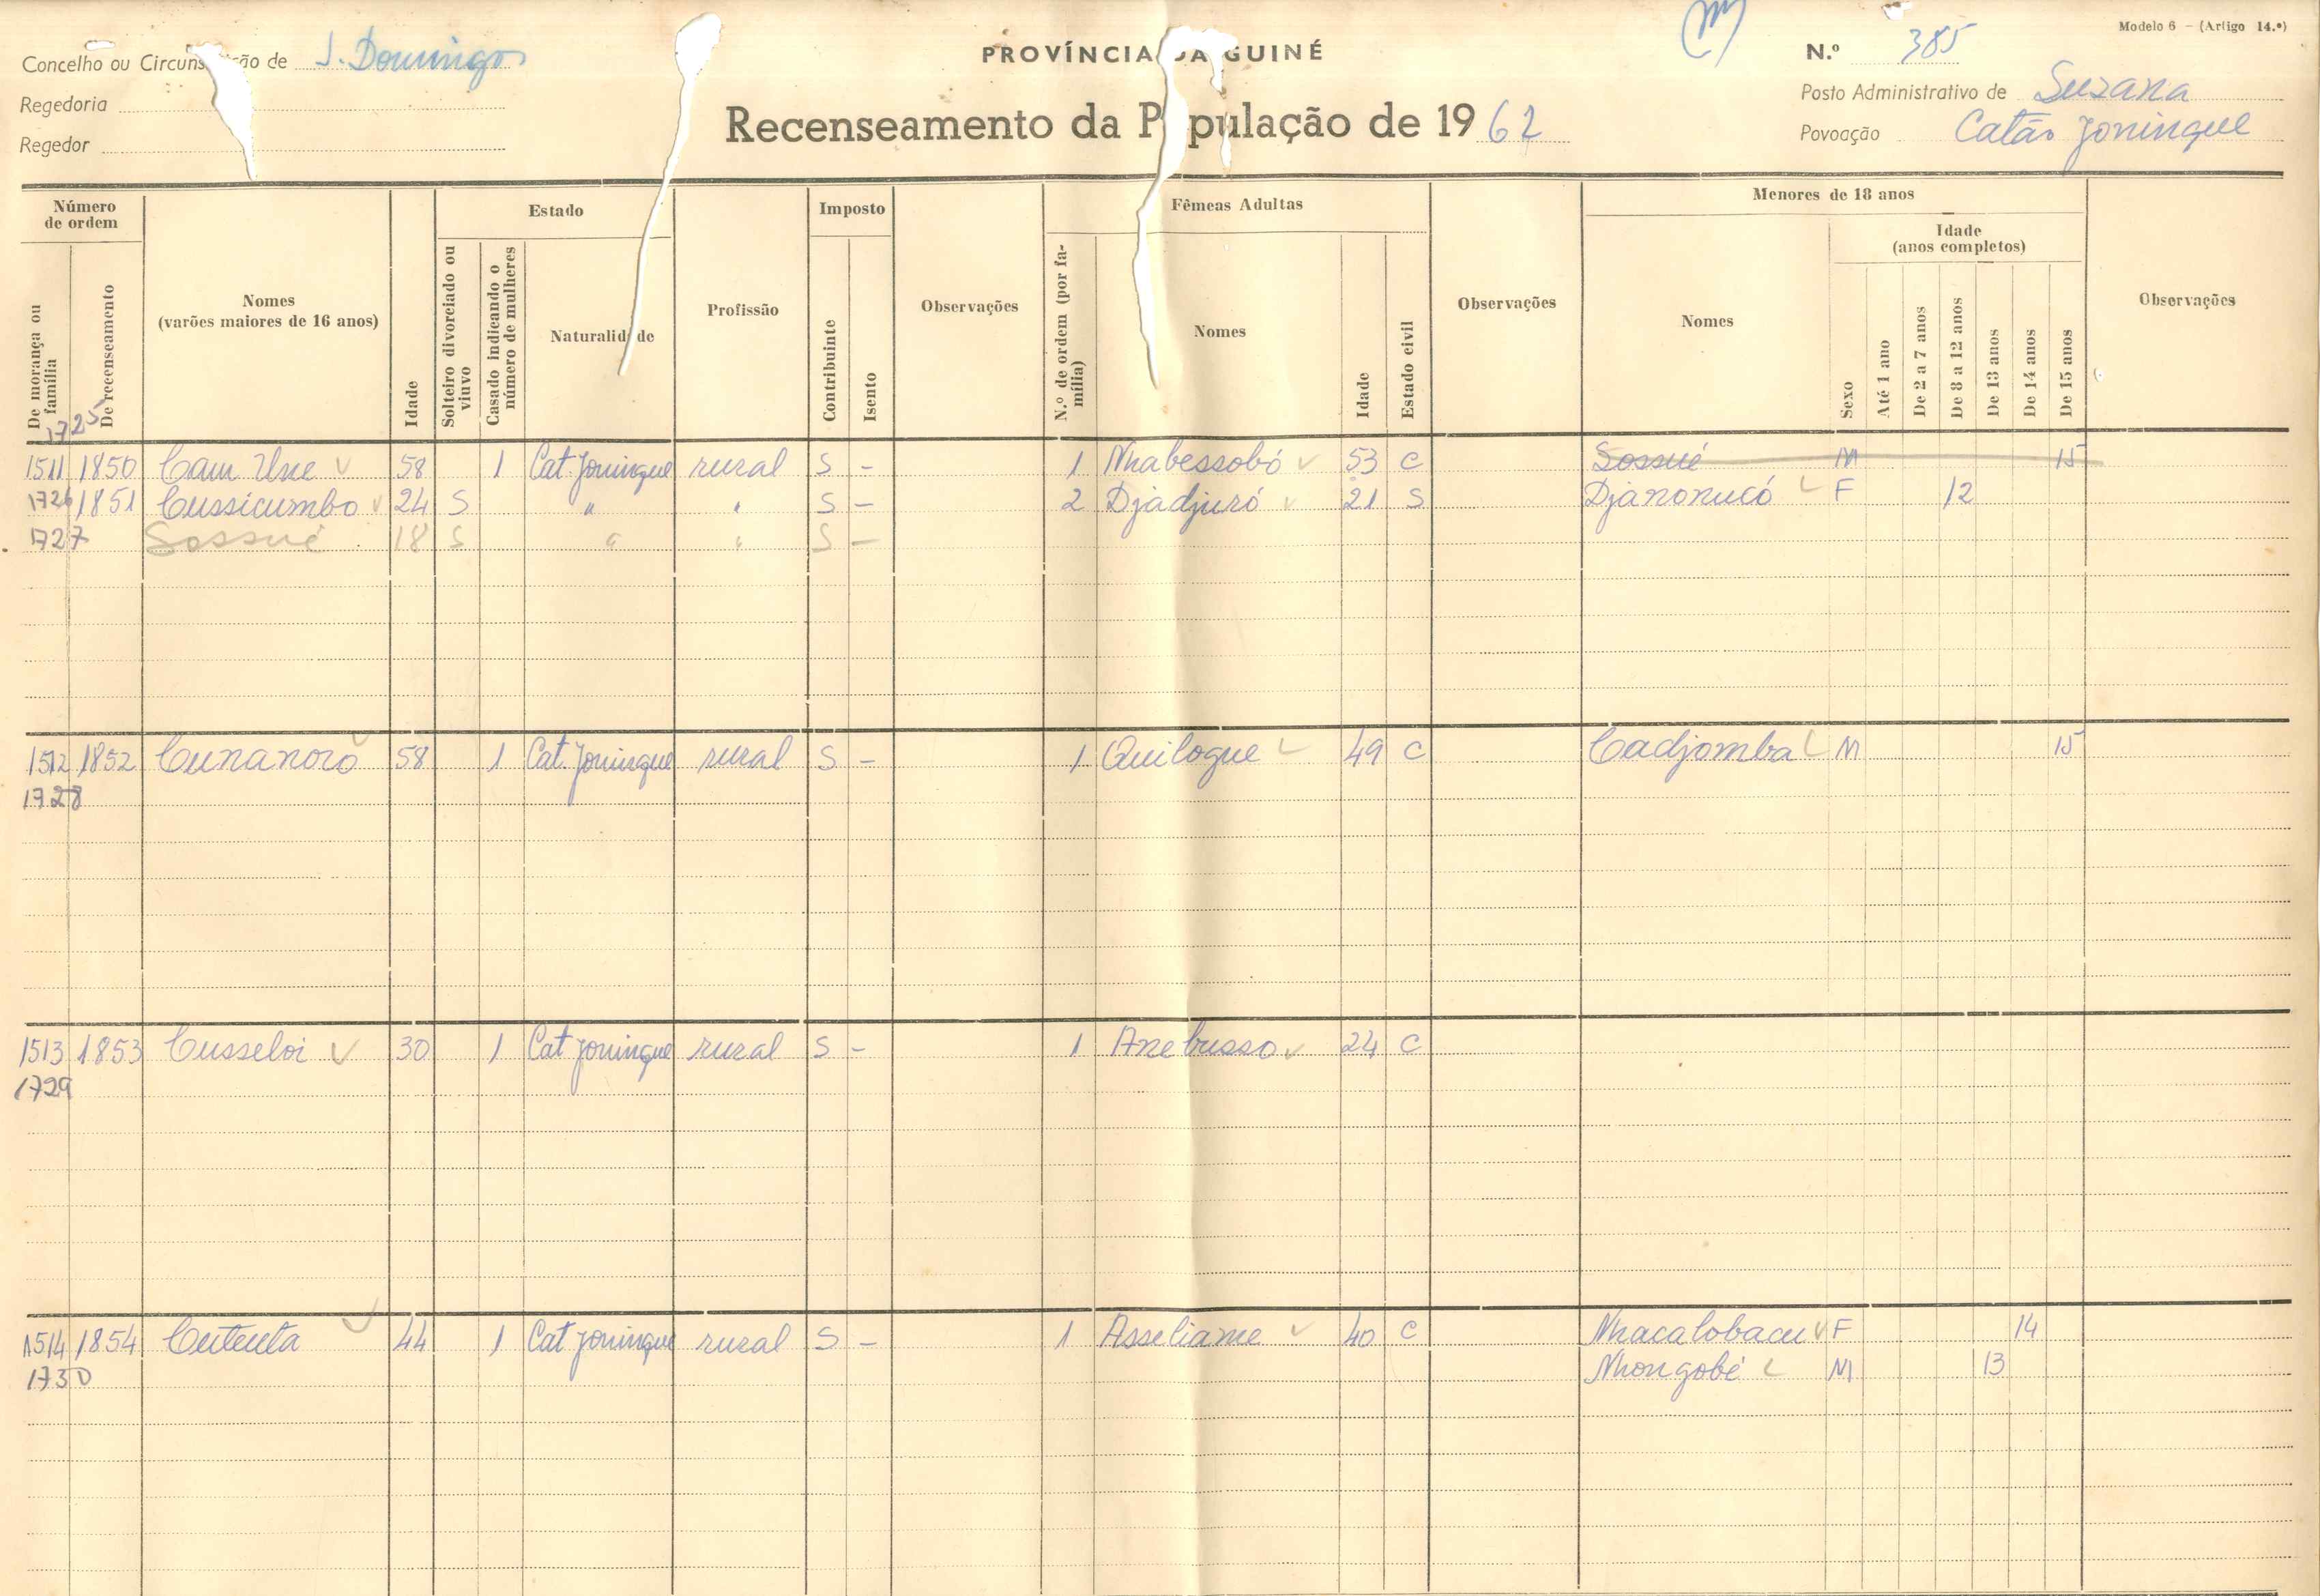 Modelo 6 - (Artigo 14.º)
Concelho ou Circunscrição de S. Domingos
PROVÍNCIA DA GUINÉ
N.º 385
Regedoria
Posto Administrativo de Suzana
Regedor
Recenseamento da População de 1962
Povoação Catão Joningue
Número de ordem
Estado
Imposto
Fêmeas Adultas
Menores de 18 anos
Idade (anos completos)
De morança ou família
De recenseamento
Nomes (varões maiores de 16 anos)
Idade
Solteiro divorciado ou viuvo
Casado indicando o número de mulheres
Naturalidade
Profissão
Contribuinte
Isento
Observações
N.º de ordem (por família)
Nomes
Idade
Estado civil
Observações
Nomes
Sexo
Até 1 ano
De 2 a 7 anos
De 8 a 12 anos
De 13 anos
De 14 anos
De 15 anos
Observações
1725
1511 1850 58 1 Cat. Joningue rural S - 1 Nhabessobó 53 C Sossué M 15
1726 1851 Cussicumbo 24 S " " S - 2 Djadjuró 21 S Djanonucó F 12
1727 Sossué 18 S " " S -
1512 1852 Cunanoró 58 1 Cat. Joningue rural S - 1 Quilogue 49 C Cadjomba M 15
1728
1513 1853 Cusseloi 30 1 Cat Joningue rural S - 1 Anebusso 24 C
1729
1514 1854 Cutenta 44 1 Cat Joningue rural S - 1 Asseliame 40 C Nhacalobacu F 14
1730 Nhongobé M 13